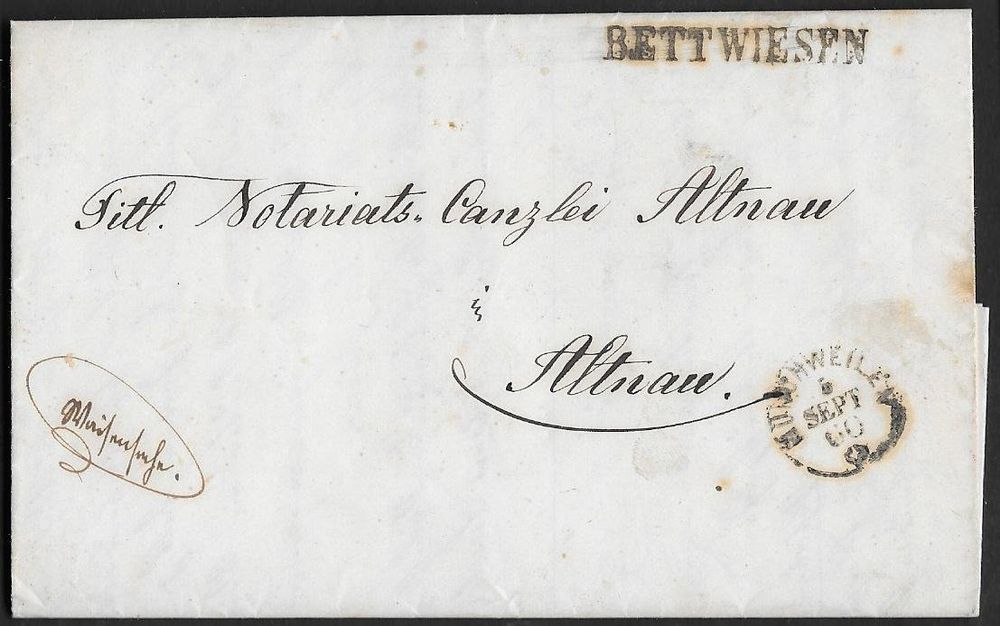 BETTWIESEN
Titl. Notariats= Canzlei Altnau
in
Altnau.
Waisensache.
MÜNCHWEILEN
5
SEPT
60